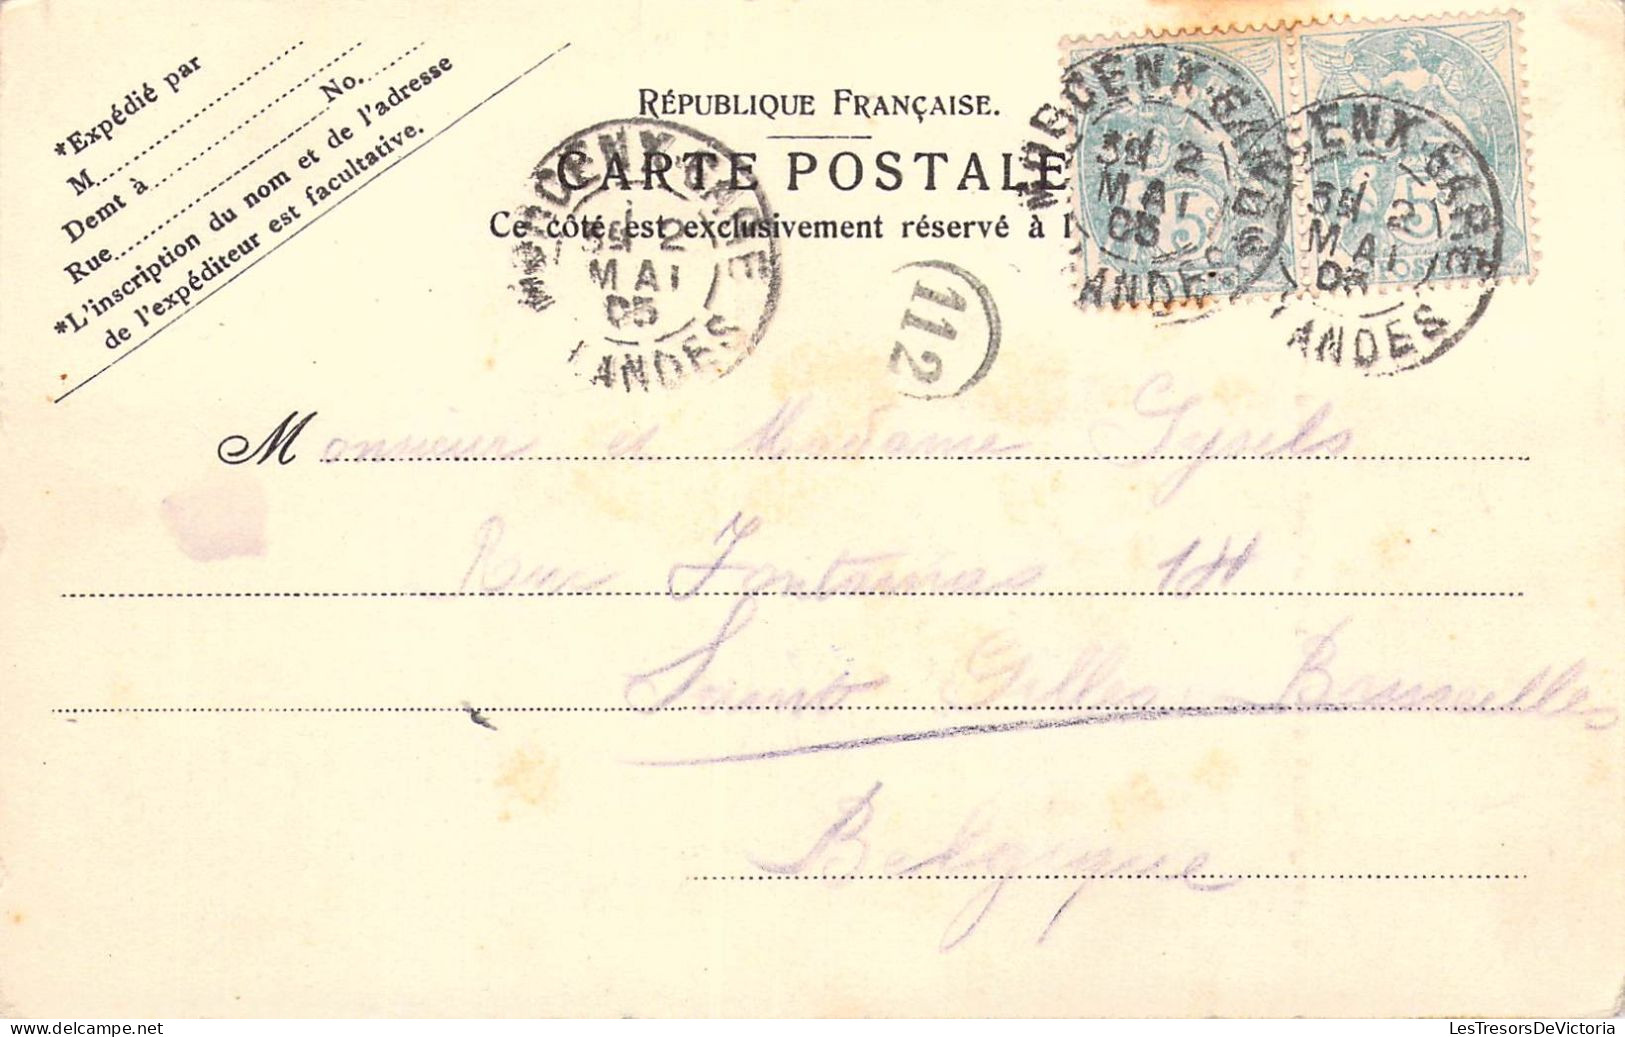 *Expédié par
M
Demt à
No.
Rue
*L'inscription du nom et de l'adresse
de l'expéditeur est facultative.
RÉPUBLIQUE FRANÇAISE.
CARTE POSTALE
Ce côté est exclusivement réservé à l
MORCENX-GARE
2
MAI
05
LANDES
MORCENX-GARE
2
MAI
05
LANDES
MORCENX-GARE
2
MAI
05
LANDES
5
5
112
Monsieur et Madame
Rue Fontainas
Saint Gilles Bruxelles
Belgique
LesTresorsDeVictoria